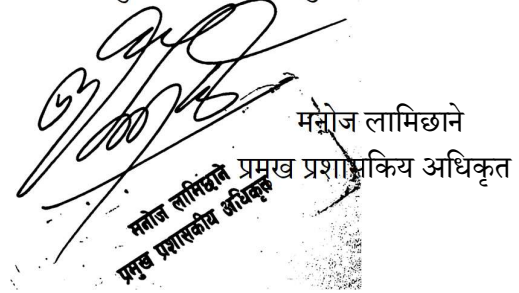 मनोज लामिछाने
प्रमुख प्रशासकिय अधिकृत
मनोज लामिछाने
प्रमुख प्रशासकीय अधिकृत